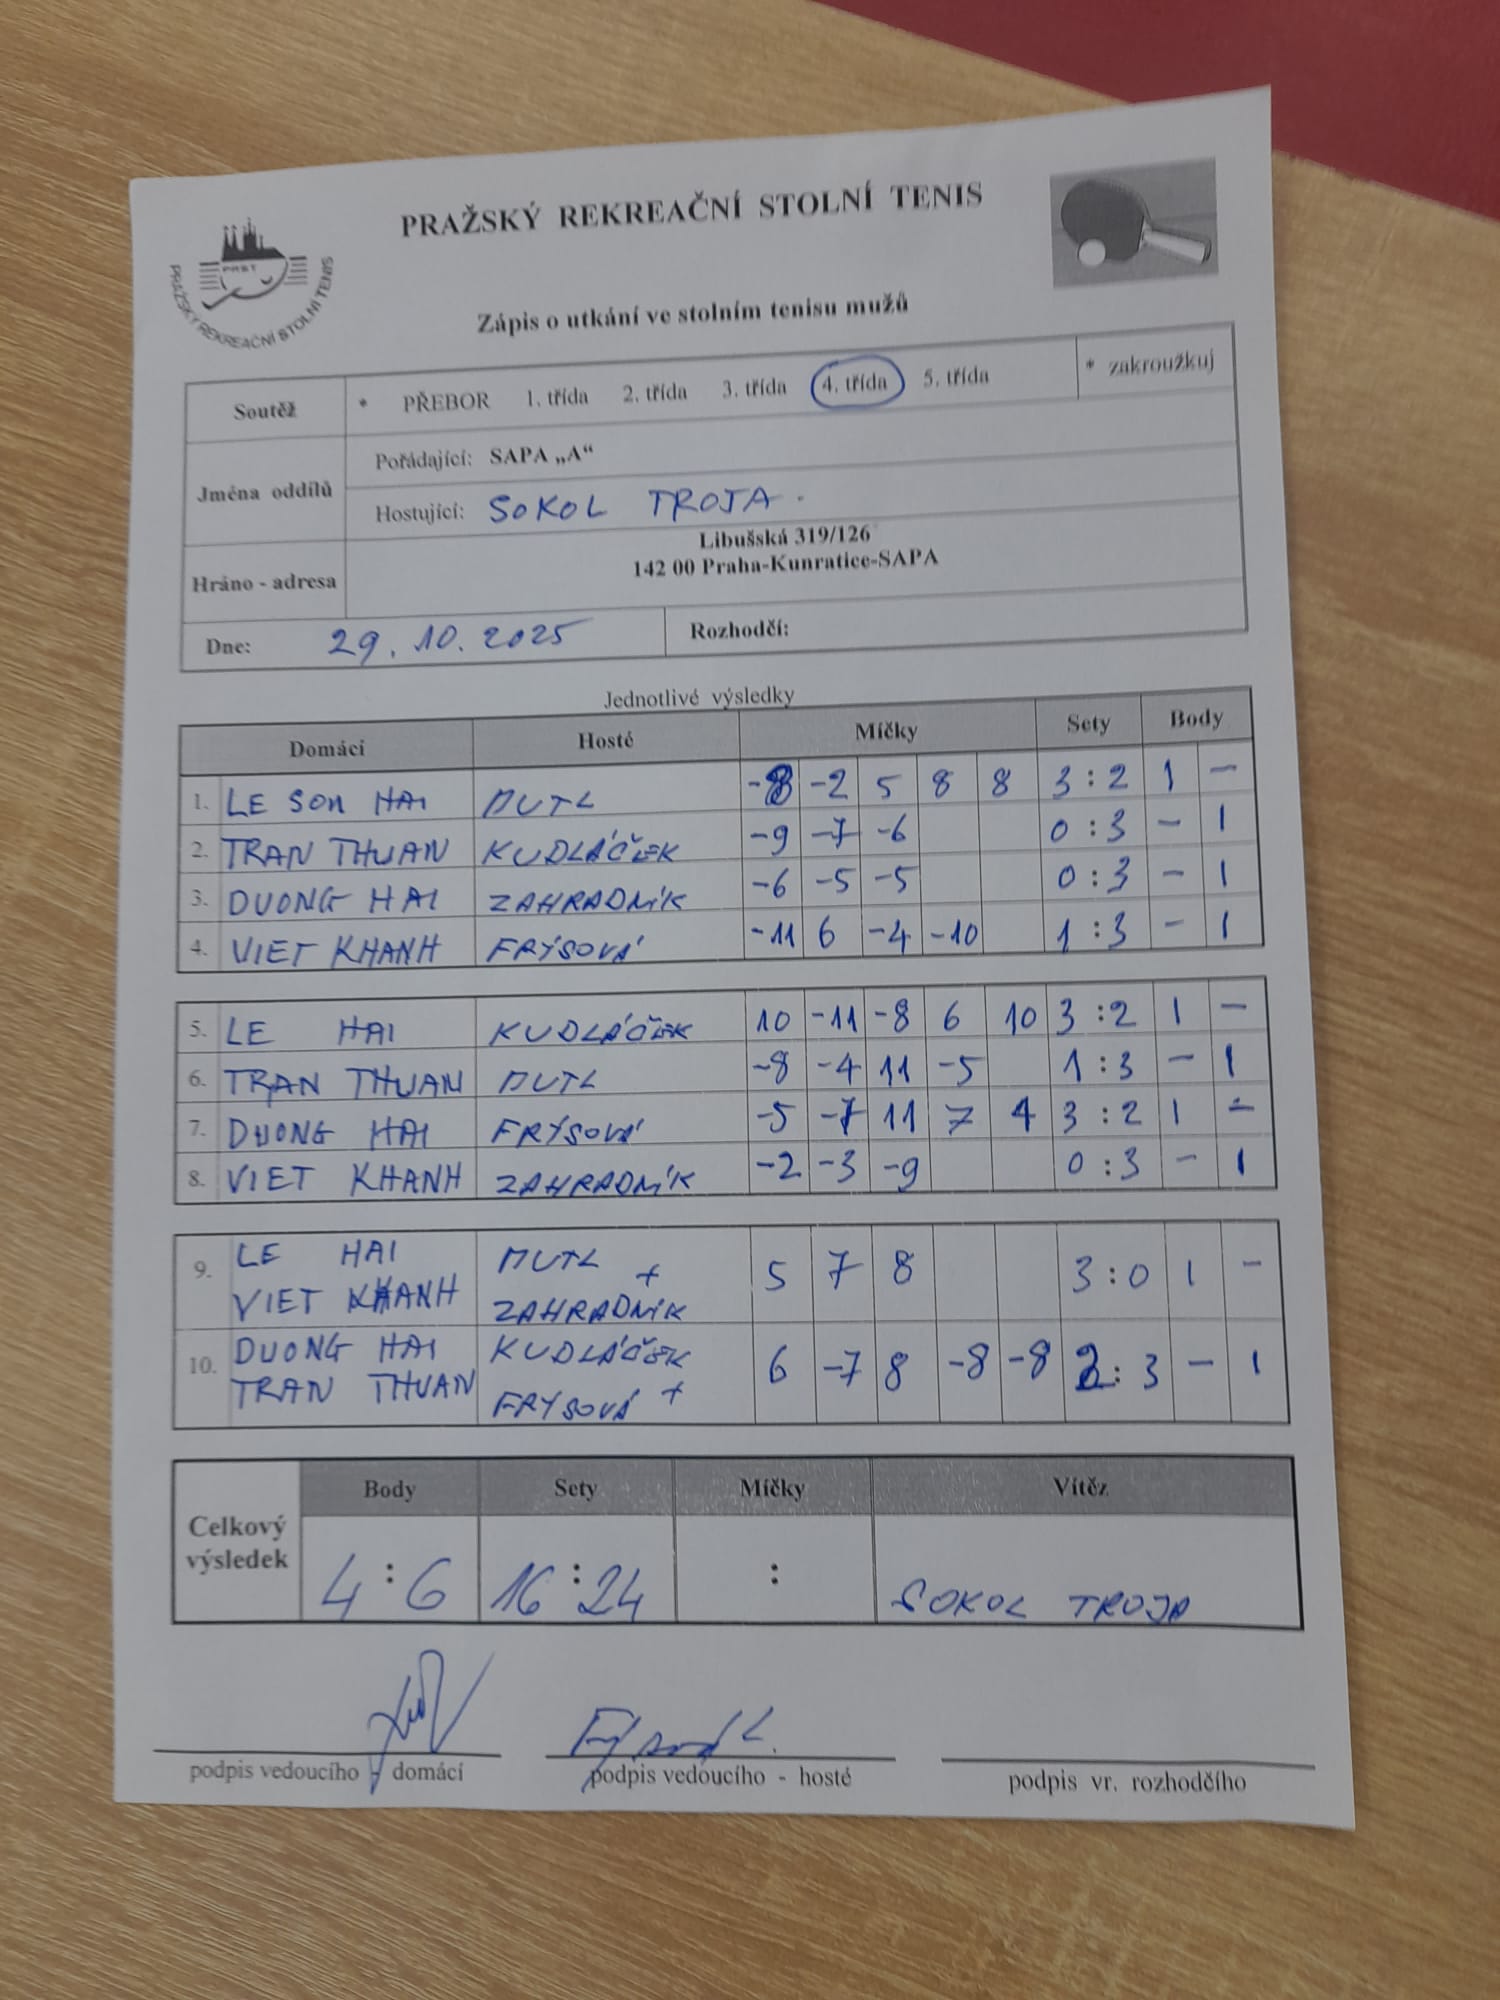 PRAŽSKÝ REKREAČNÍ STOLNÍ TENIS
PRST
PRAŽSKÝ REKREAČNÍ STOLNÍ TENIS
Zápis o utkání ve stolním tenisu mužů
Soutěž * PŘEBOR 1. třída 2. třída 3. třída 4. třída 5. třída * zakroužkuj
Jména oddílů
Pořádající: SAPA „A“
Hostující: SOKOL TROJA.
Hráno - adresa
Libušská 319/126
142 00 Praha-Kunratice-SAPA
Dne: 29. 10. 2025 Rozhodčí:
Jednotlivé výsledky
Domácí Hosté Míčky Sety Body
1. LE SON HAI MUTL -8 -2 5 8 8 3:2 1 -
2. TRAN THUAN KUDLÁČEK -9 -7 -6 0:3 - 1
3. DUONG HAI ZAHRADNÍK -6 -5 -5 0:3 - 1
4. VIET KHANH FRÝSOVÁ -11 6 -4 -10 1:3 - 1
5. LE HAI KUDLÁČEK 10 -11 -8 6 10 3:2 1 -
6. TRAN THUAN MUTL -8 -4 11 -5 1:3 - 1
7. DUONG HAI FRÝSOVÁ -5 -7 11 7 4 3:2 1 -
8. VIET KHANH ZAHRADNÍK -2 -3 -9 0:3 - 1
9. LE HAI MUTL +
VIET KHANH ZAHRADNÍK 5 7 8 3:0 1 -
10. DUONG HAI KUDLÁČEK
TRAN THUAN FRÝSOVÁ + 6 -7 8 -8 -8 2:3 - 1
Celkový výsledek
Body Sety Míčky Vítěz
4:6 16:24 : SOKOL TROJA
podpis vedoucího - domácí
podpis vedoucího - hosté
podpis vr. rozhodčího